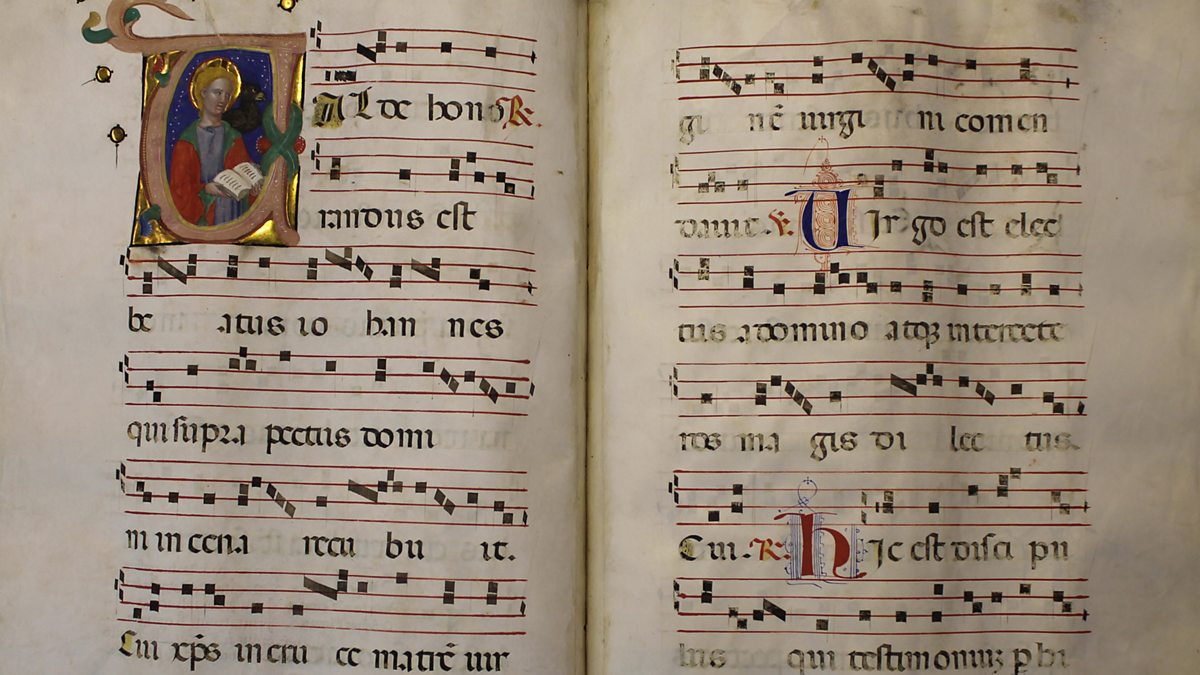 VALDE hono R.
randus est
be atus io han nes
qui supra pectus domi
ni in cena recu bu it.
Cui xp̄s in cru ce matrē uir
gi nē uirgi ni comen
dauit. V. UIrgo est elec
tus a domino atqꝫ inter cete
ros ma gis di lec tus.
Cui. R. hIc est disci pu
lus qui testimoniuꝫ ꝑhi